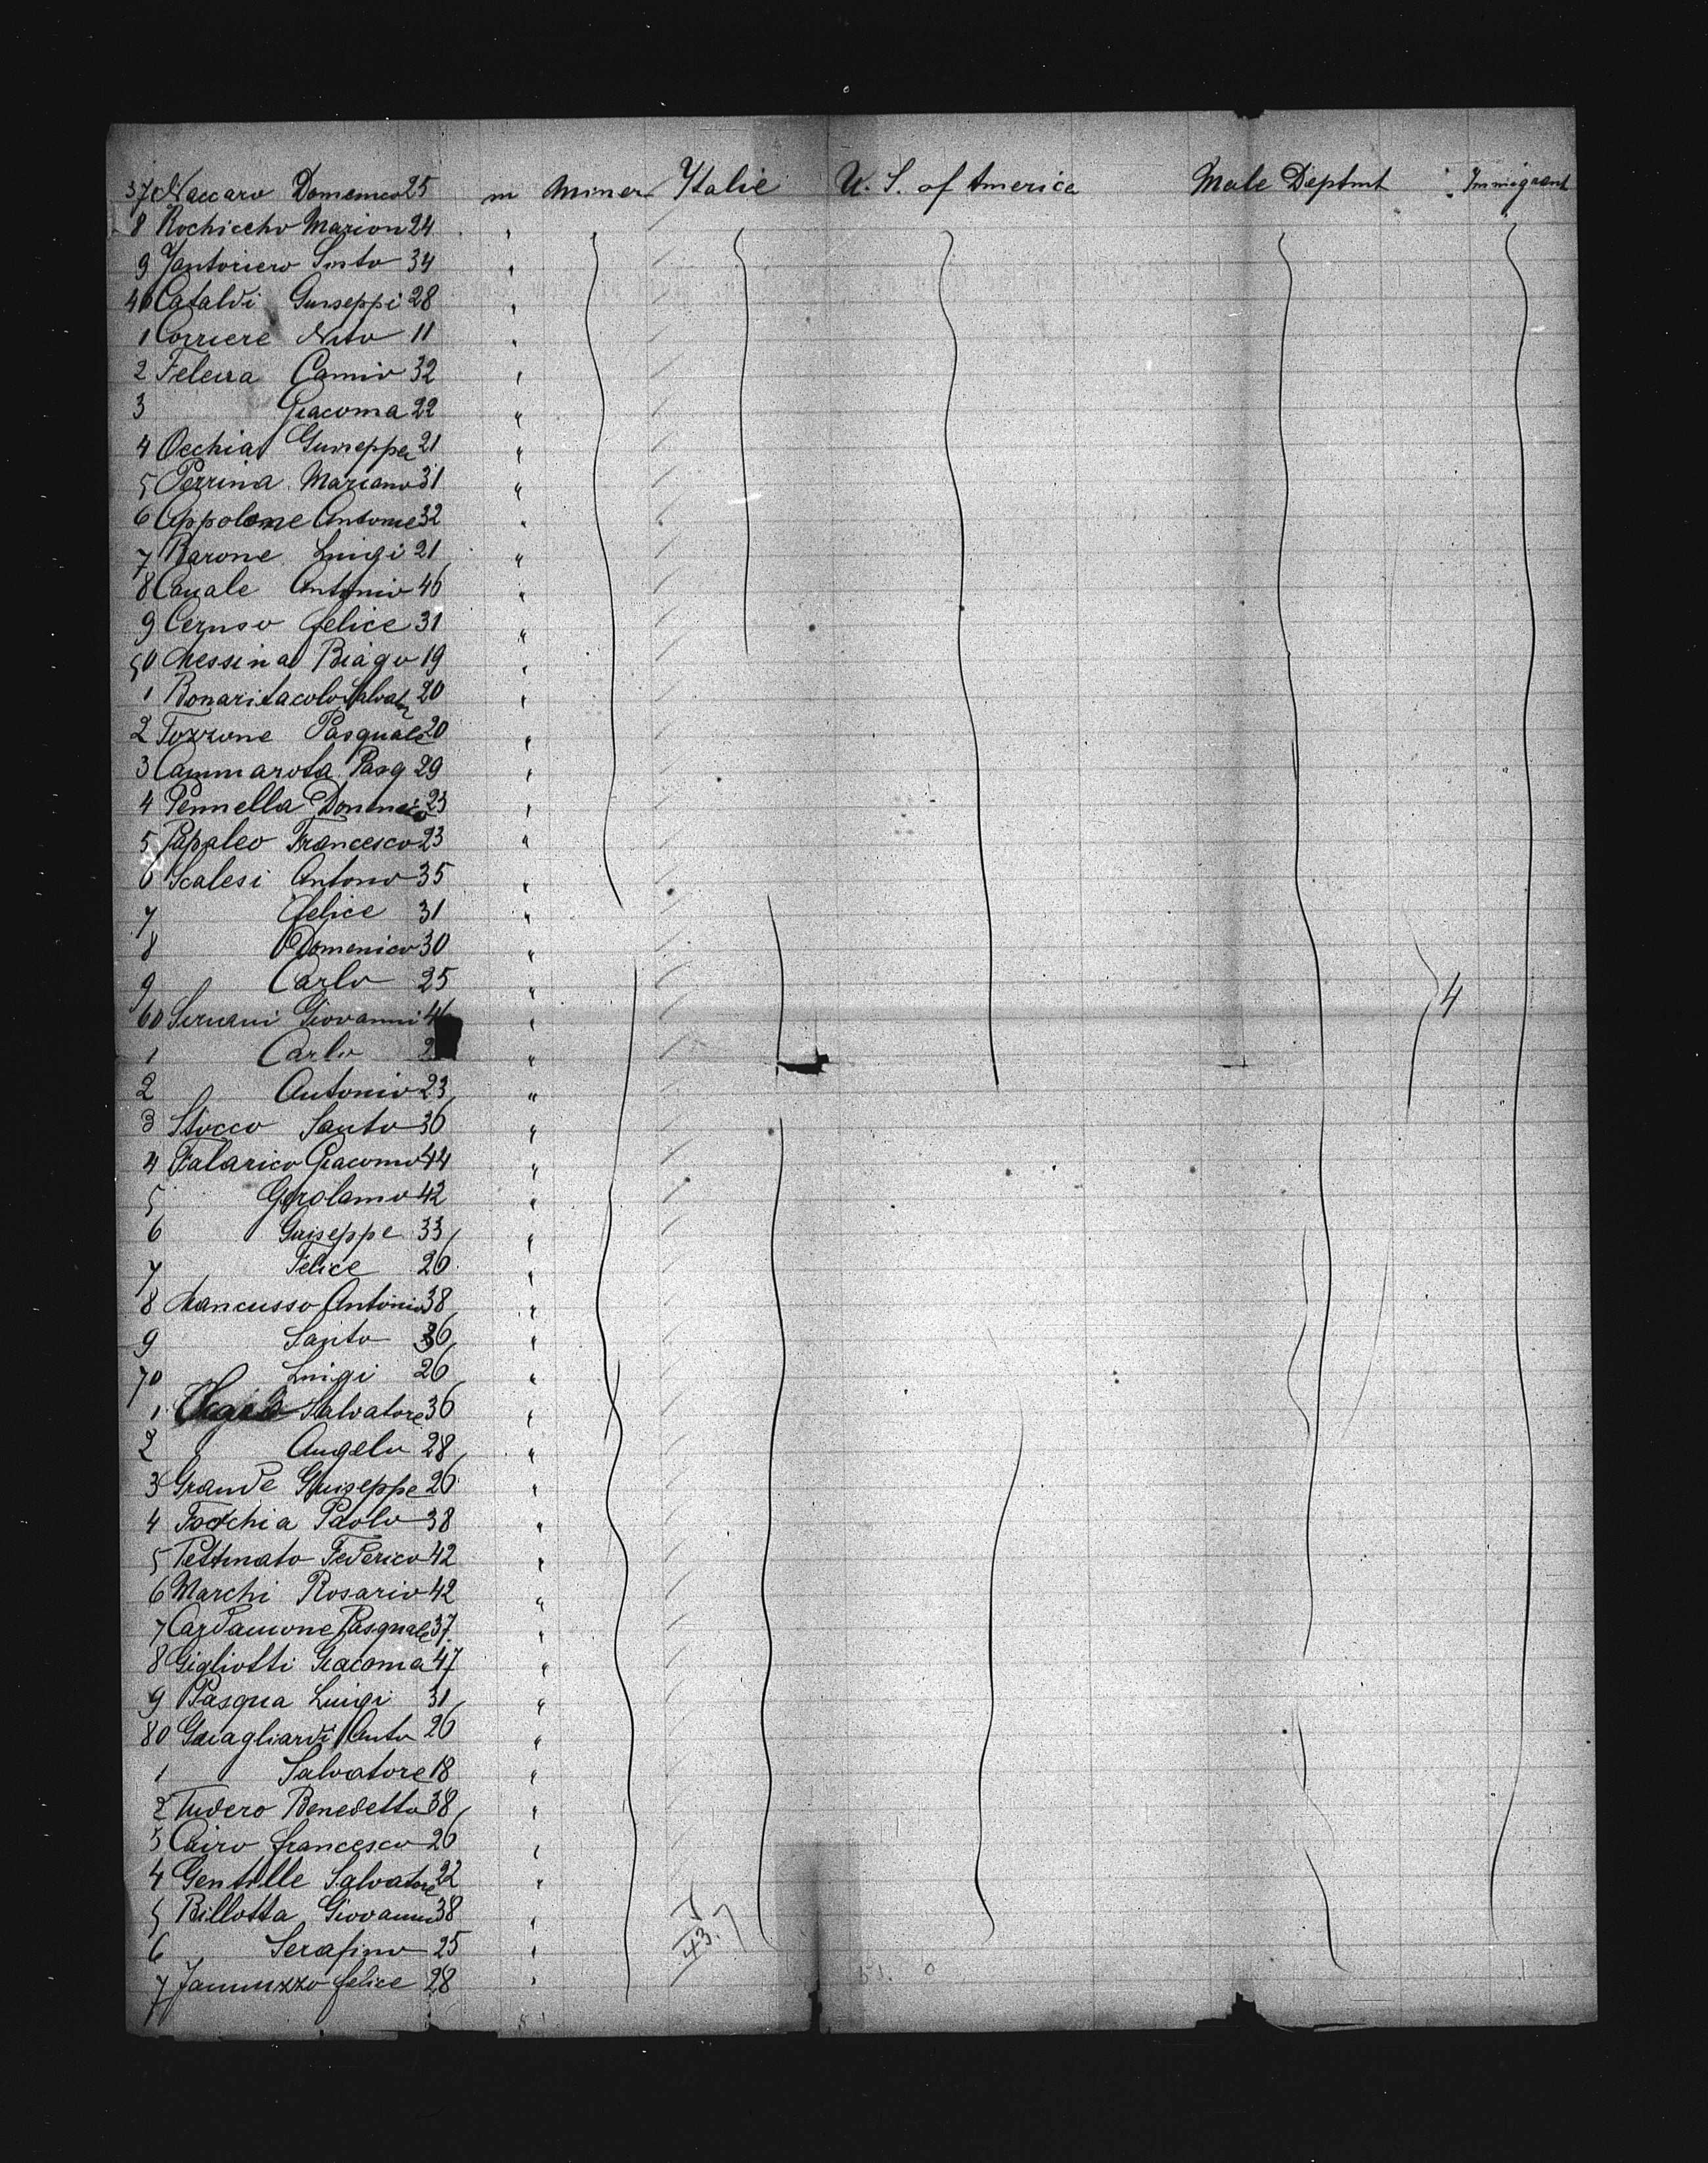 37 Naccaro Domenico 25 m Miner Italie U. S. of America Male Deptmt Immigrant
8 Rochiccho Marion 24 "
9 Jantoriero Sisto 34 "
40 Cataldi Guiseppi 28 "
1 Corriere Nito 11 "
2 Feleira Camio 32 "
3 Giacoma 22 "
4 Occhia Guiseppe 21 "
5 Perrina Mariano 31 "
6 Appolone Antonie 32 "
7 Barone Luigi 21 "
8 Canale Antonio 46 "
9 Ceruso felice 31 "
50 Messina Biago 19 "
1 Bonaritacolo Salvat 20 "
2 Tozzone Pasquale 20 "
3 Cammarota Pasq 29 "
4 Pennella Domenico 23 "
5 Papaleo Francesco 23 "
6 Scalesi Antono 35 "
7 felice 31 "
8 Domenico 30 "
9 Carlo 25 " 4
60 Giovanni "
1 Carlo 2 "
2 Antonio 23 "
3 Stocco Santo 36 "
4 Talarico Giacomo 44 "
5 Gerolamo 42 "
6 Guiseppe 33 "
7 Felice 26 "
8 Mancusso Antonio 38 "
9 Santo 36 "
70 Luigi 26 "
1 Salvatore 36 "
2 Angelo 28 "
3 Grande Guiseppe 26 "
4 Paolo 38 "
5 Pettinato Federico 42 "
6 Marchi Rosario 42 "
7 Cardamone Pasquale 37 "
8 Gigliotti Giacoma 47 "
9 Pasqua Luigi 31 "
80 Gaiagliardi Anto 26 "
1 Salvatore 18 "
2 Tudero Benedetto 38 "
3 Cairo francesco 26 "
4 Gentille Salvatore 22 "
5 Billotta Giovanni 38 "
6 Serafino 25 "
43.
7 Jannuzzo felice 28 "